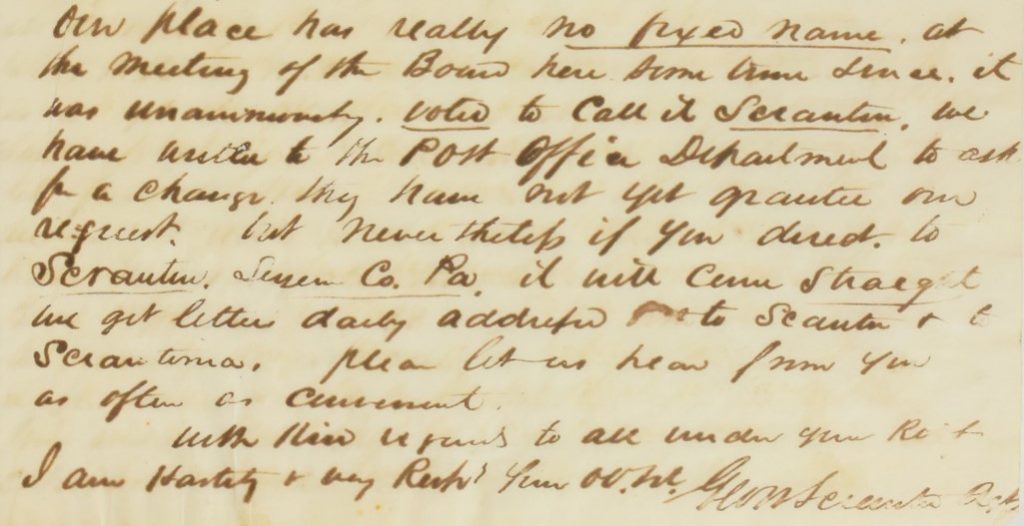 Our place has really no fixed name. at
the Meeting of the Board here some time since. it
was unanimously. voted to Call it Scranton. we
have written to the Post Office Department to ask
for a change. they have not yet granted our
request. but nevertheless if you direct. to
Scranton. Luzern Co. Pa. it will Come Straegt
we get letters daily addressed to Scanton & to
Scrantonia. please let us hear from you
as often as convenient.
with kind regards to all under your Roof
I am Hastily & very Respt Your Ob. St. Geo W Scranton